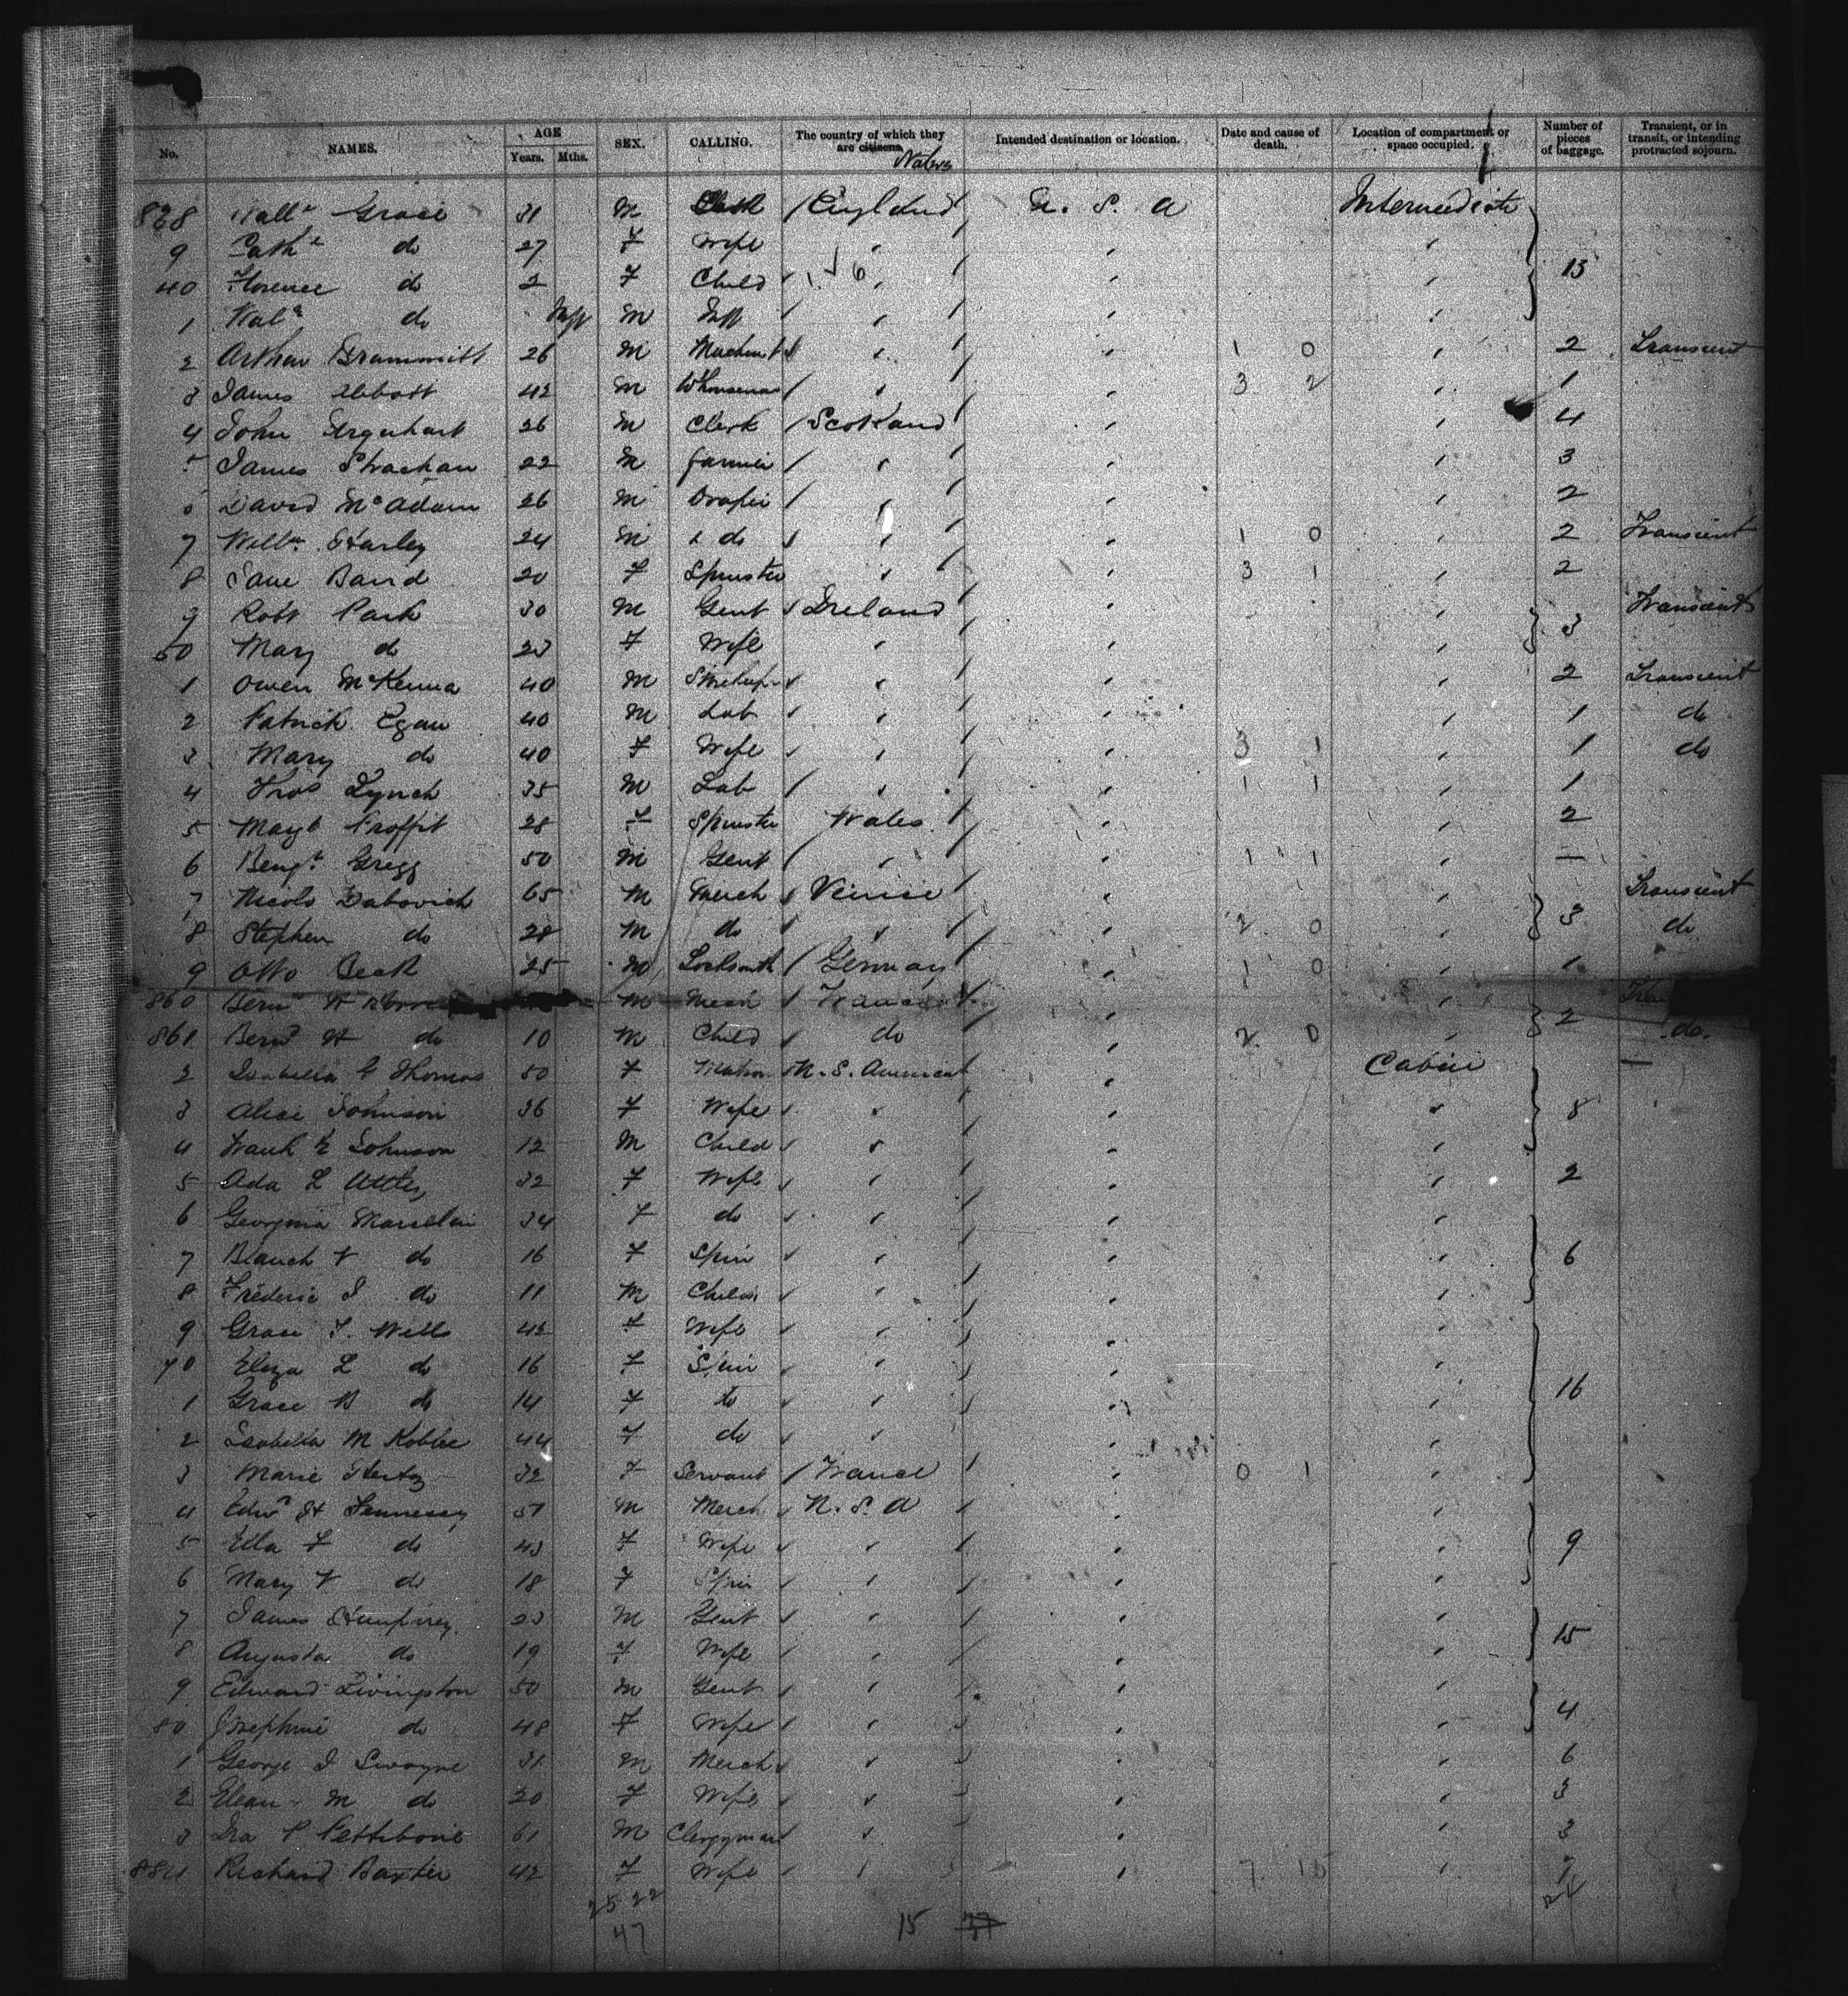 No. NAMES. AGE Years. Mths. SEX. CALLING. The country of which they are citizens. Natives Intended destination or location. Date and cause of death. Location of compartment or space occupied. Number of pieces of baggage. Transient, or in transit, or intending protracted sojourn.
838 Grace 31 M Clerk England U. S. A Intermediate
9 Cath do 27 F Wife
40 Florence do 2 F Child 13
1 do Inft M Inft
2 Arthur 26 M 1 0 2 Transient
3 James Abbott 42 M 3 2 1
4 John Urquhart 26 M Clerk Scotland 4
5 James Strachan 22 M farmer 3
6 David McAdam 26 M Draper 2
7 Willm 24 M do 1 0 2 Transient
8 Jane Baird 20 F Spinster 3 1 2
9 Robt Park 30 M Gent Ireland 3 Transient
50 Mary do 23 F Wife
1 Owen McKenna 40 M 2 Transient
2 Patrick Egan 40 M Lab 1 do
3 Mary do 40 F Wife 3 1 1 do
4 Thos Lynch 35 M Lab 1 1 1
5 Proffit 28 F Spinster Wales 2
6 Benjn Gregg 50 M Gent 1 1 —
7 Nicolo Dabovich 65 M Merch Venice 3 Transient
8 Stephen do 28 M do 2 0 do
9 Otto Beck 25 M Locksmith Germany 1 0 1
860 M Mech France 2
861 Bernd H do 10 M Child do 2 0 do.
2 Isabella G Thomas 50 F Matron N. S. America Cabin —
3 Alice Johnson 36 F Wife 8
4 Frank E Johnson 12 M Child
5 Ada L 32 F Wife 2
6 Georgina 34 F do
7 Blanch V do 16 F Spin 6
8 Frederic J do 11 M Child
9 Grace F. Wells 42 F Wife
70 Eliza L do 16 F Spin
1 Grace B do 14 F do 16
2 Isabella M Kobbe 44 F do
3 Marie Hertz 32 F Servant France 0 1
4 Edwd H Fennessy 51 M Merch U. S. A
5 Ella F do 43 F Wife 9
6 Mary V do 18 F Spin
7 James Humfrey 23 M Gent
8 Augusta do 19 F Wife 15
9 Edward Livingston 50 M Gent
80 Josephine do 48 F Wife 4
1 George I Swayne 31 M Merch 6
2 M do 20 F Wife 3
3 Ira P Pettibone 61 M Clergyman 3
884 Richard Baxter 42 F Wife 7 15
25 22
47 15 37